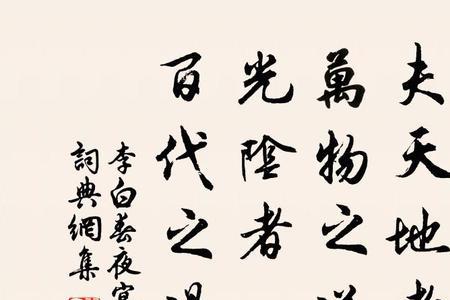 夫天地者
萬物之逆
光陰者
百代之過
李白春夜宴
詞典網集